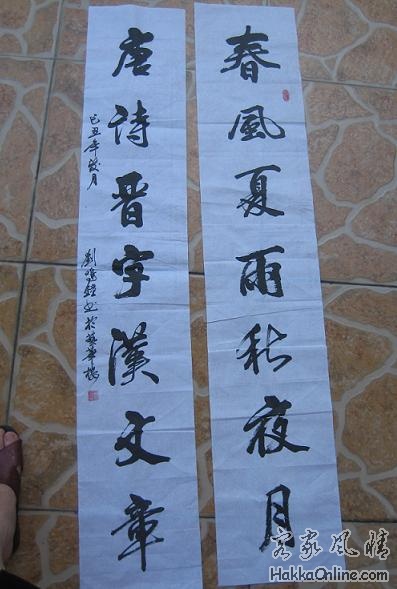 春風夏雨秋夜月
唐詩晋字漢文章
己丑年秋月
劉鴻鐘書於藝華樓
客家风情
HakkaOnline.com